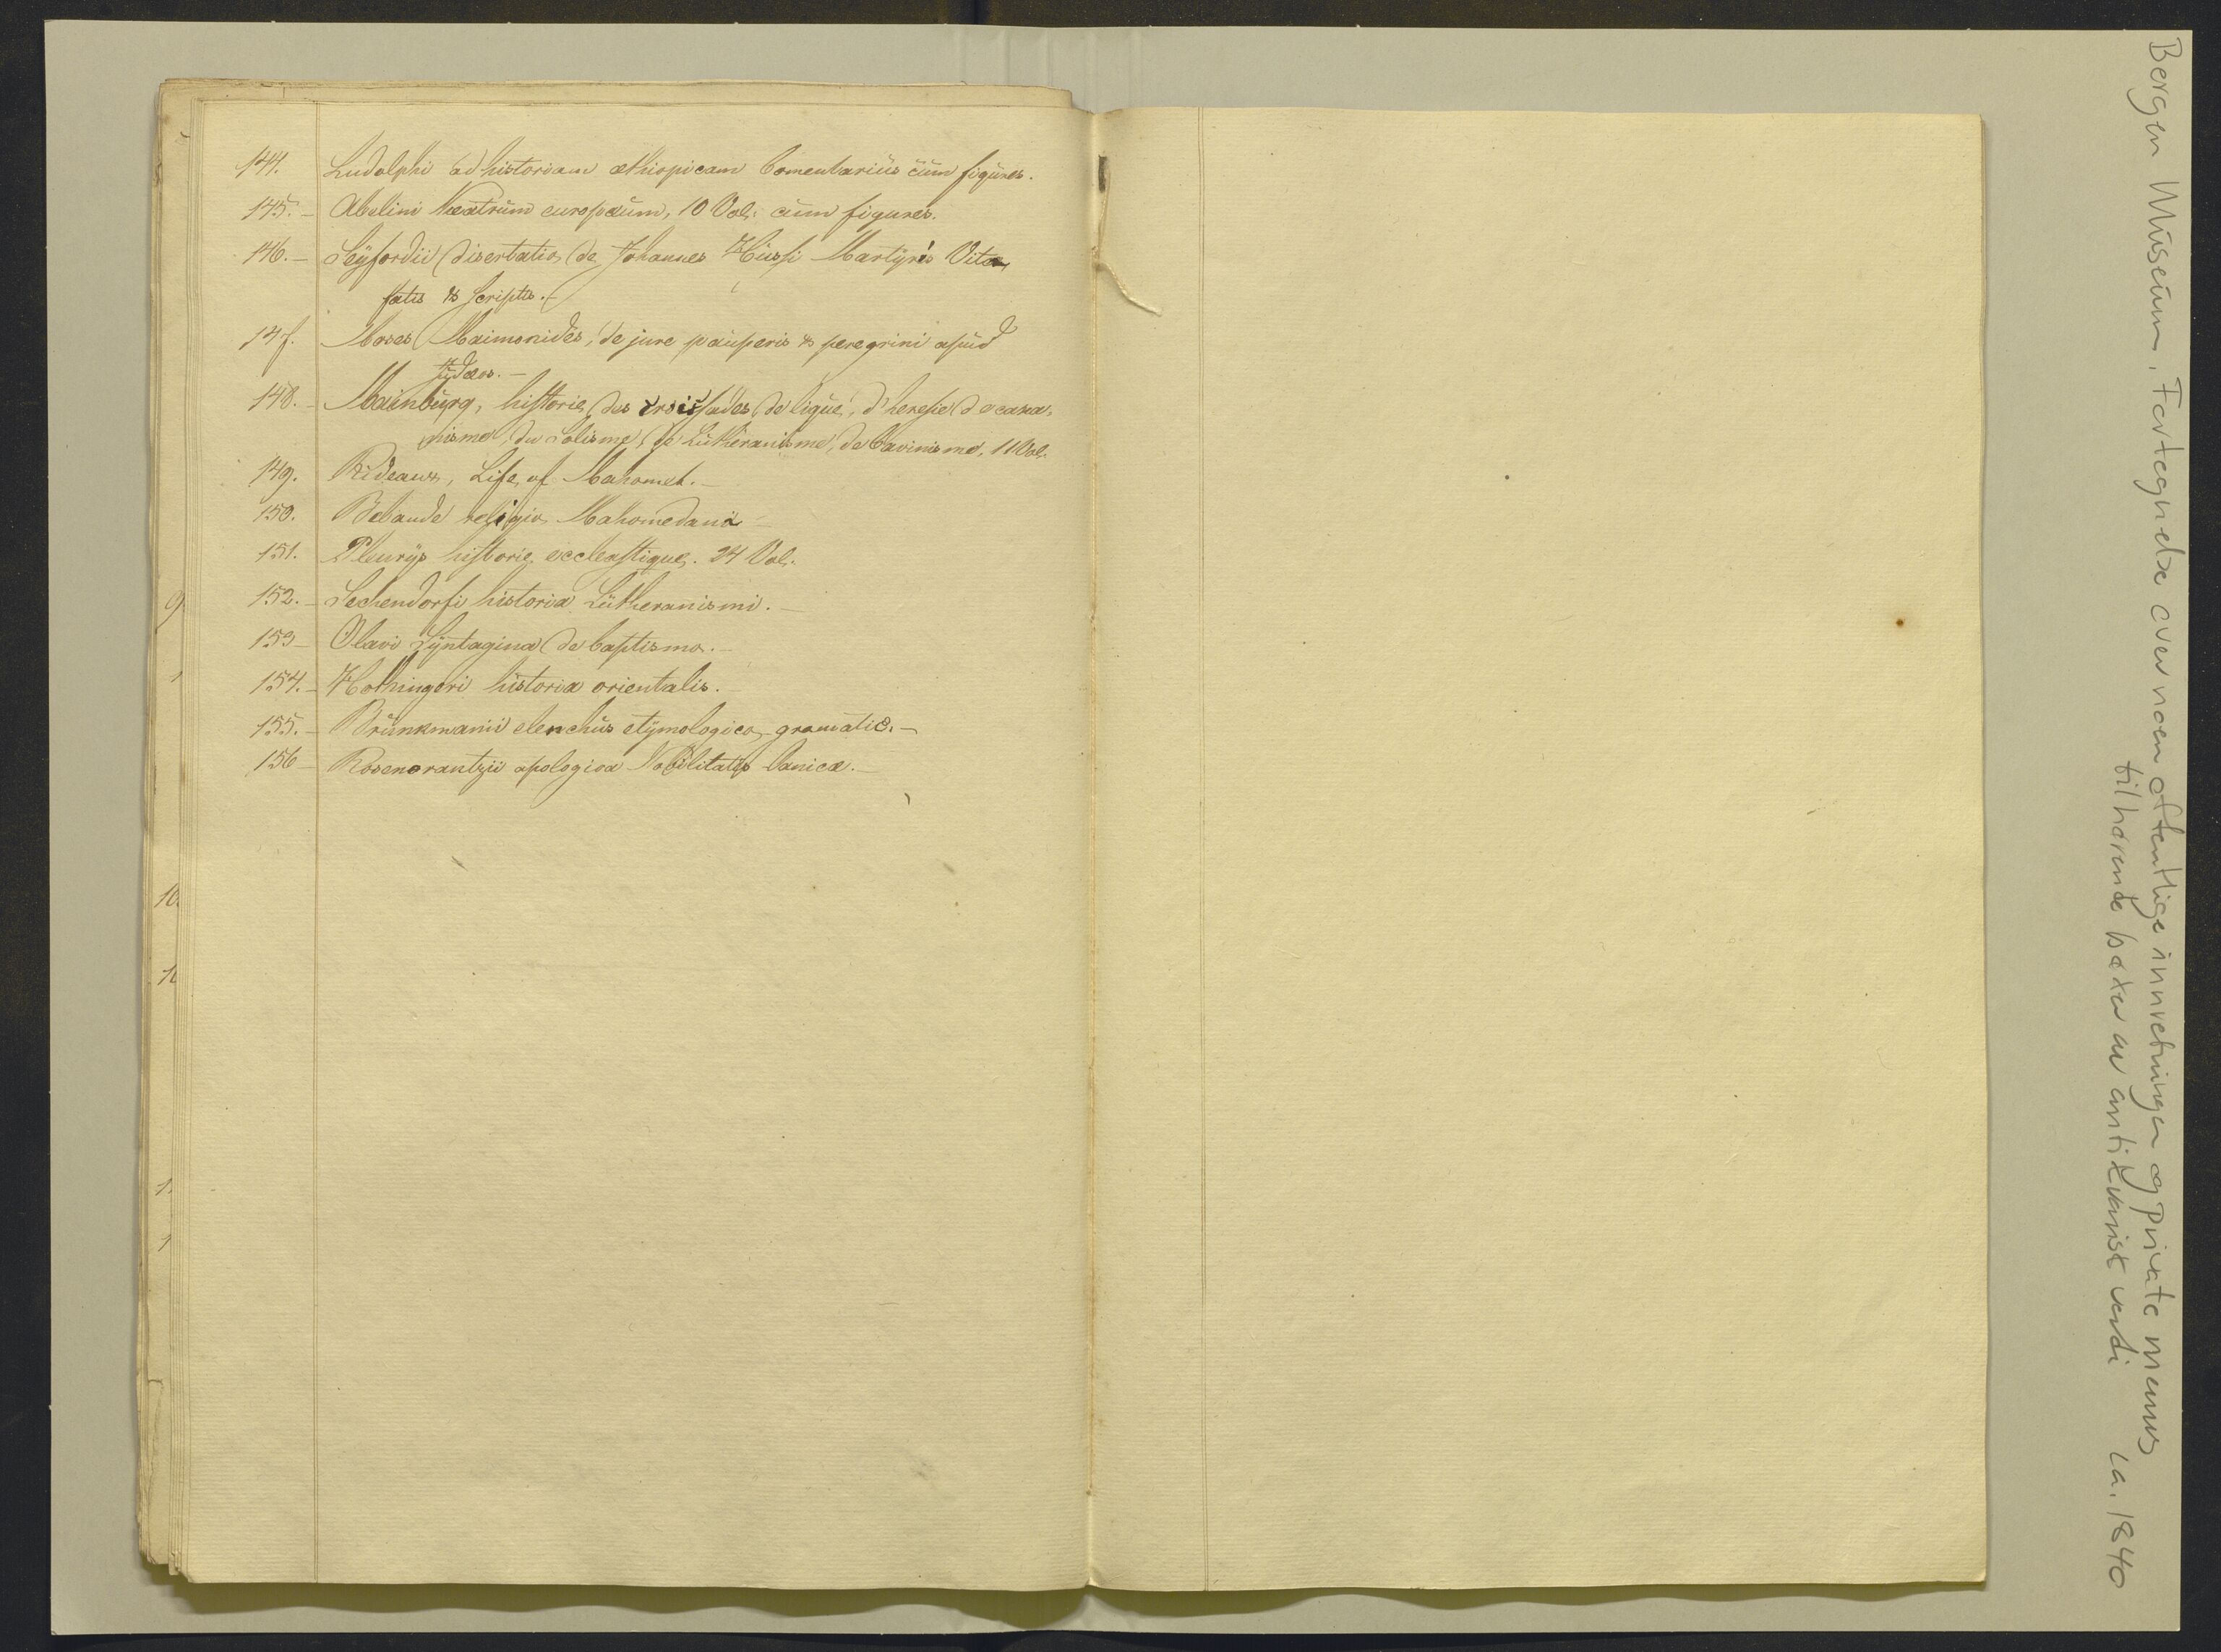 144. Ludolphi ad historiam æthiopicam Comentariüs cüm figüres.
145. – Abelini Theatrüm europæüm, 10 Vol. cüm figures.
146. – Seÿfordii disertatio de Johannes Hüssi Martÿris Vita
fatis & Scriptis. –
147. Moses Maimonides, de jure paüperis & peregrini apüd
Jüdæos. –
148. – Mainbürg, historie des croissades de ligüe, d'heresie d
nisme, du Lütheranisme, de Cavinisme, 11 Vol.
149. Rideaux, Life of Mahomet. –
150. Relande religio Mahomedana –
151. Fleurÿs historie ecclesstique. 24 Vol.
152. – Sechendorfi historia Lütheranismi. –
153 – Olavi Sÿntagma de baptismo. –
154. – Hothingeri historia orientalis. –
155. – Brünkmanii elenchüs etÿmologico-gramatic. –
156 – Rosencrantzii apologiea Nobilitatis Danicæ. –
9
10
1
1
Bergen Museum. Fortegnelse over noen offentlige innretninger og private menns
tilhørende bøker av antikvarisk verdi ca. 1840